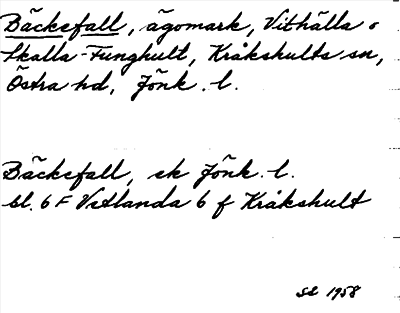 Bäckefall, ägomark, Vithälla o
Skalla-Funghult, Kråkshults sn,
Östra hd, Jönk. l.
Bäckefall, ek Jönk. l.
bl. 6 F Vetlanda 6 f Kråkshult
1958